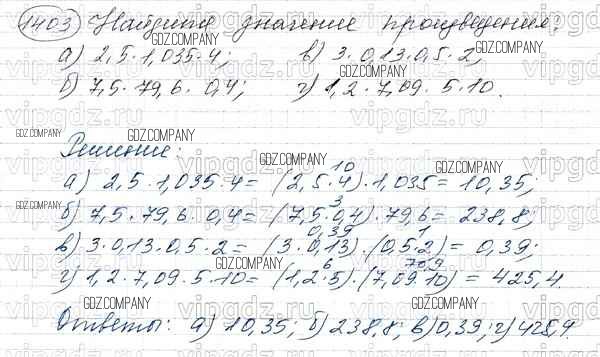 1403 Найдите значение произведения:
а) 2,5·1,035·4; в) 3·0,13·0,5·2;
б) 7,5·79,6·0,4; г) 1,2·7,09·5·10.
Решение:
а) 2,5·1,035·4 = (2,5·4)·1,035 = 10,35;
10
б) 7,5·79,6·0,4 = (7,5·0,4)·79,6 = 238,8;
3
в) 3·0,13·0,5·2 = (3·0,13)·(0,5·2) = 0,39;
0,39 1
г) 1,2·7,09·5·10 = (1,2·5)·(7,09·10) = 425,4.
6 70,9
Ответы: а) 10,35; б) 238,8; в) 0,39; г) 425,4.
GDZ.COMPANY
vipgdz.ru